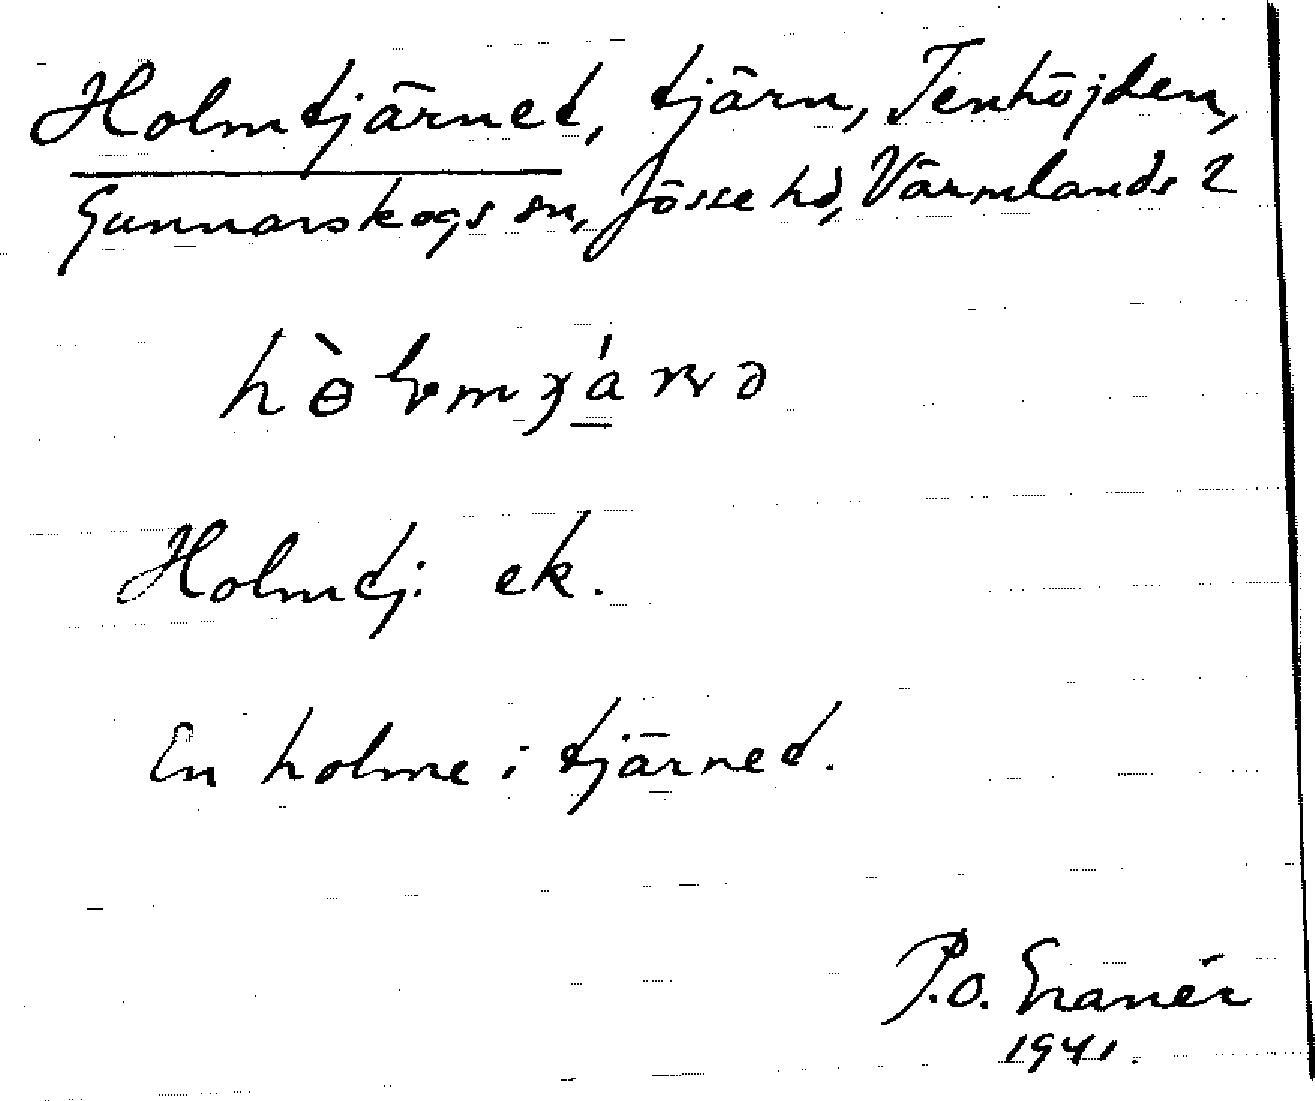 Holmtjärnet, tjärn, Tenhöjden,
Gunnarskogs sn, Jösse hd, Värmlands l
Holmtj: ek.
En holme i tjärnet.
P.O. Granér
1941.